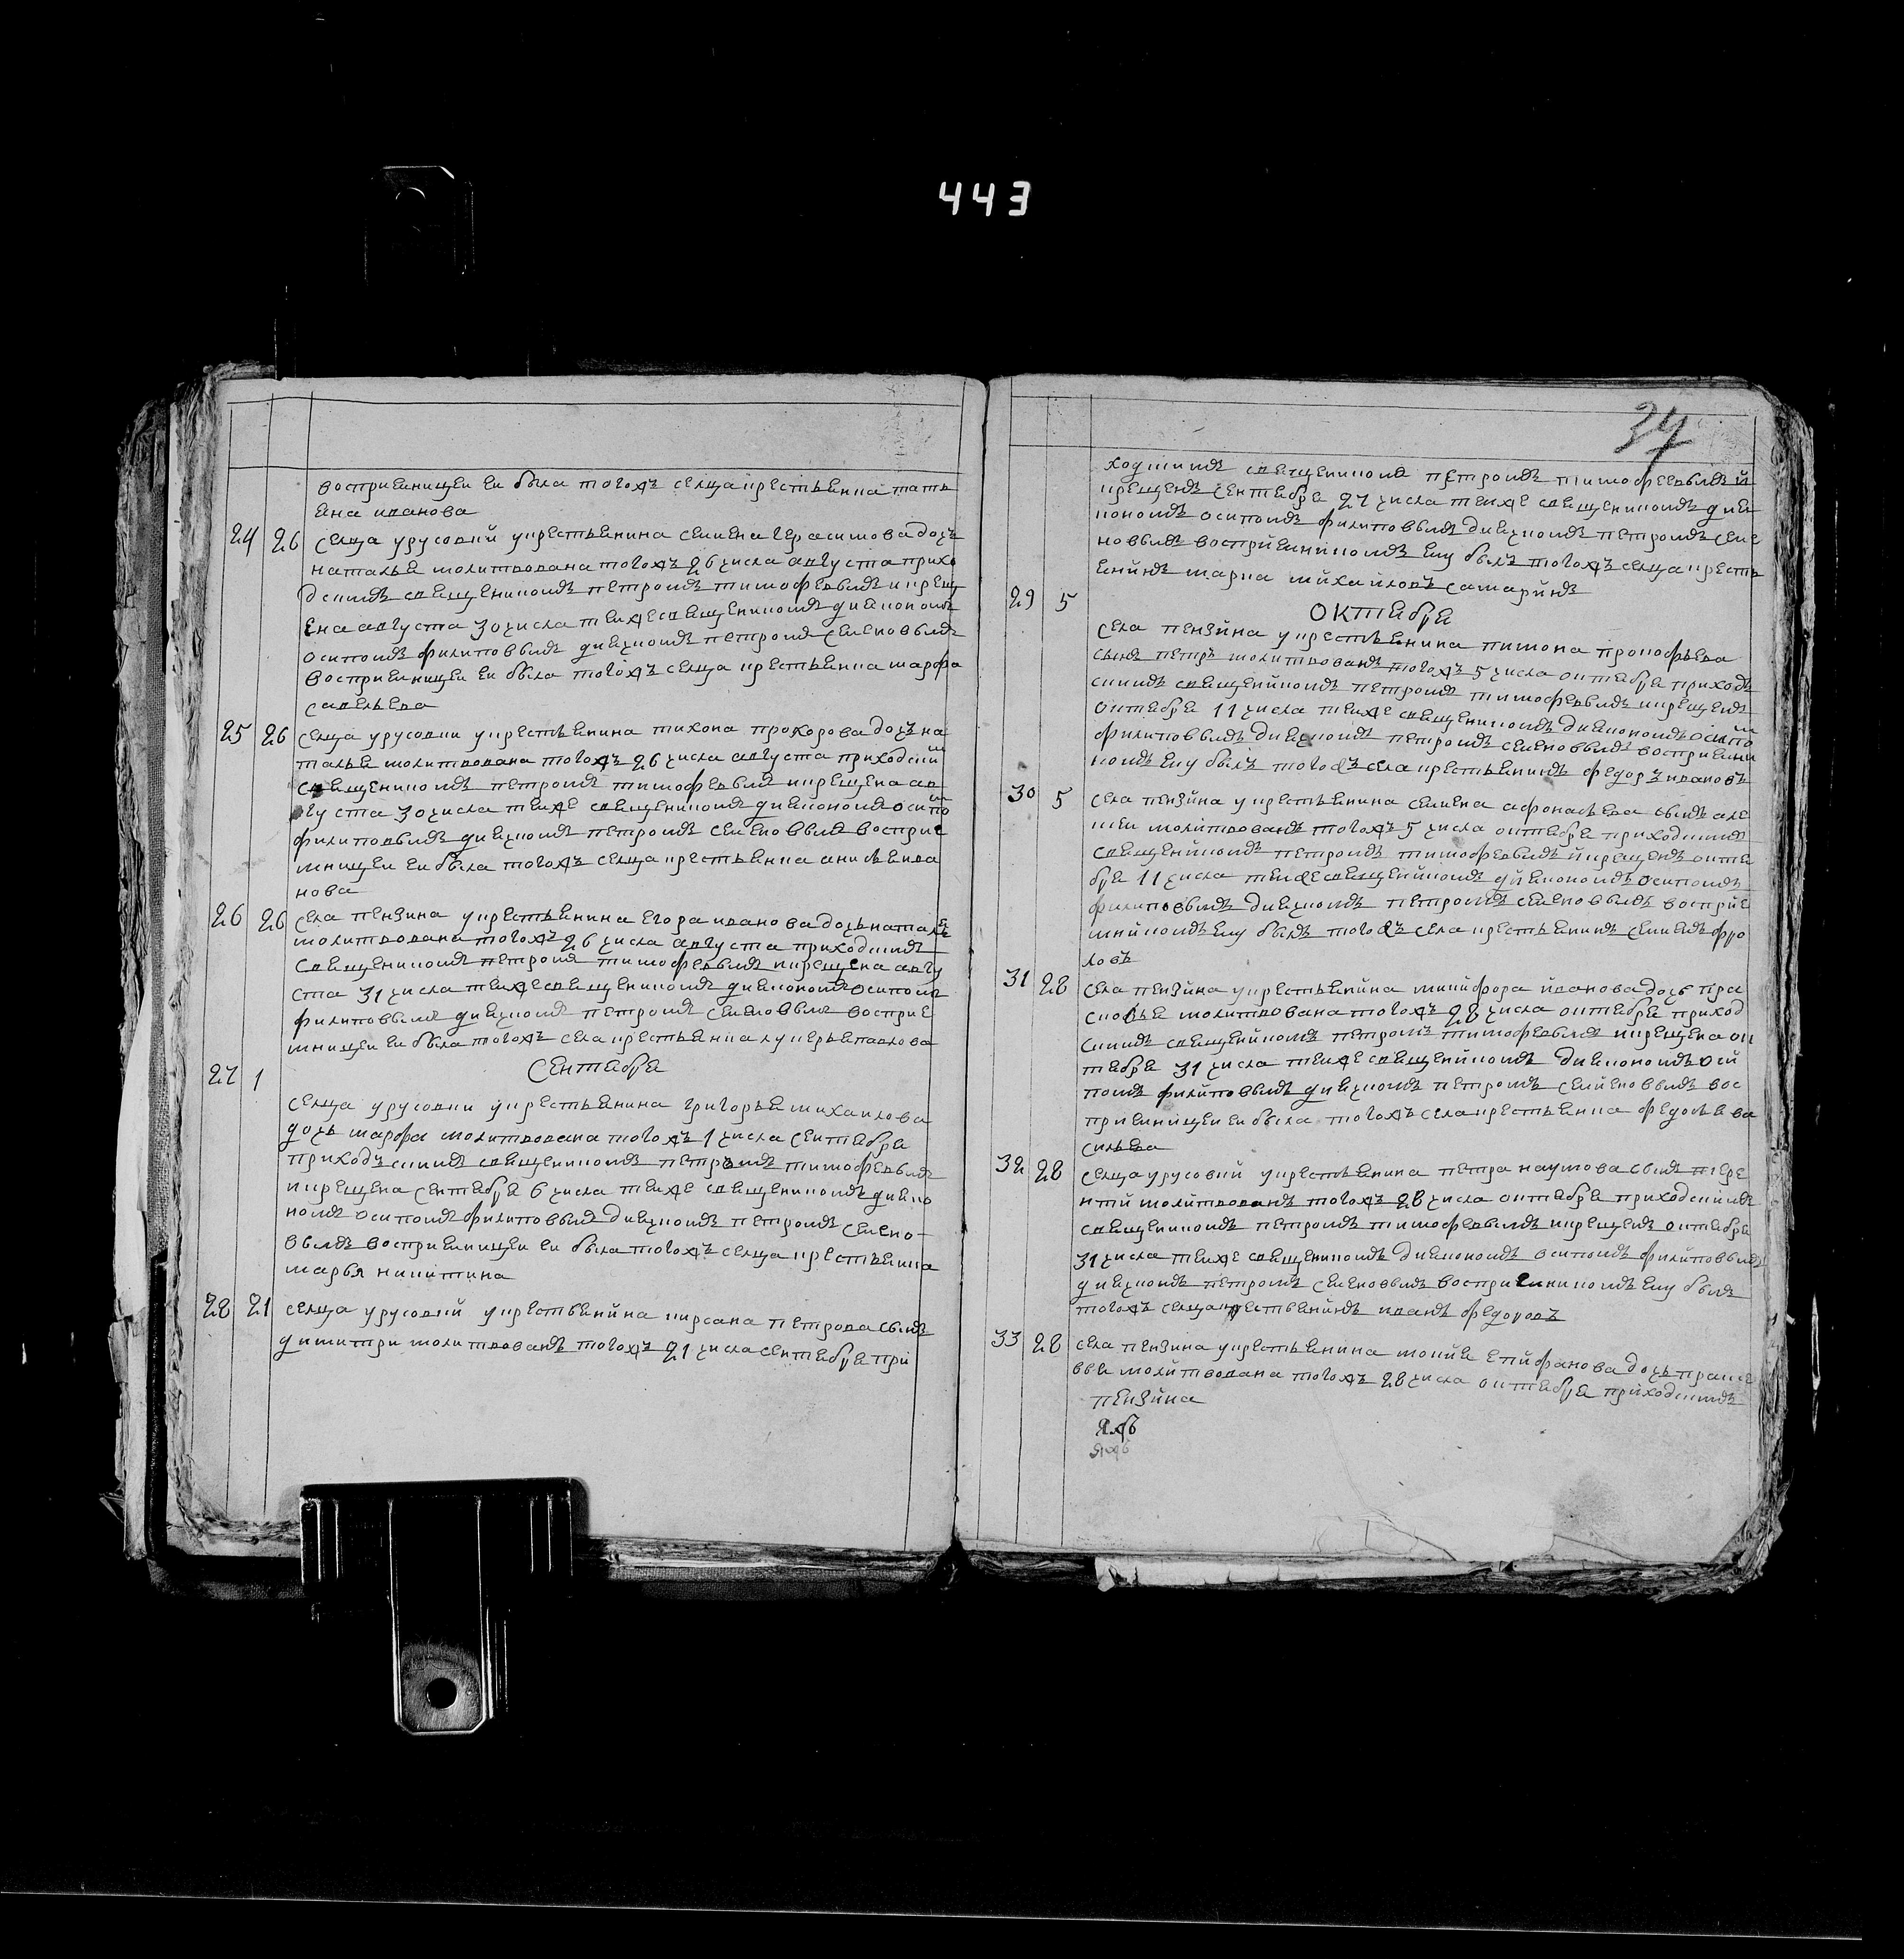 443
восприемницеи еи была тогожъ сельца крестьянка тать
яна иванова
24 26 сельца урусовки у крестьянина семиона герасимова дочь
наталья молитвована тогожъ 26 числа августа прихо
дскимъ священникомъ петромъ тимофеевымъ и крещ
ена августа 30 числа темже священникомъ диякономъ
осипомъ филиповымъ диячкомъ петромъ семеновымъ
восприемницеи еи была тогожъ сельца крестьянка марфа
савельева
25 26 сельца урусовки у крестьянина тихона прохорова дочь на
талья молитвована тогожъ 26 числа августа приходским
священникомъ петромъ тимофеевымъ и крещена ав
густа 30 числа темже священникомъ диякономъ осипом
филиповымъ диячкомъ петромъ семеновымъ восприе
мницеи еи была тогожъ сельца крестьянка анисья ива
нова
26 26 села пензина у крестьянина егора иванова дочь наталья
молитвована тогожъ 26 числа августа приходскимъ
священникомъ петромъ тимофеевымъ и крещена авгу
ста 31 числа темже священникомъ диякономъ осипомъ
филиповымъ диячкомъ петромъ семеновымъ восприе
мницеи еи была тогожъ села крестьянка лукерья павлова
сентября
27 1
сельца урусовки у крестьянина григорья михаилова
дочь марфа молитвована тогожъ 1 числа сентября
приходъскимъ священникомъ петромъ тимофеевымъ
и крещена сентября 6 числа темже священникомъ дияко
номъ осипомъ филиповымъ диячкомъ петромъ семено-
вымъ восприемницеи еи была тогожъ сельца крестьянка
марья никитина
28 21 сельца урусовкй у крестьянина кирсана петрова сынъ
димитри молитвованъ тогожъ 21 числа сентября при
34
ходскимъ священникомъ петромъ тимофеевымъ й
крещенъ сентября 27 числа темже священникомъ дия
кономъ осипомъ филиповымъ диячкомъ петромъ семе
новымъ восприемникомъ ему былъ тогожъ сельца кресть
янинъ марка михайловъ самаринъ
октября
29 5
села пензйна у крестьянина пимона прокофьева
сынъ петръ молитвованъ тогожъ 5 числа октября приходъ
скимъ священникомъ петромъ тимофеевымъ и крещенъ
октября 11 числа темже священникомъ диякономъ осипом
филиповымъ диячкомъ петромъ семеновымъ восприемни
комъ ему былъ тогожъ села крестьянинъ федоръ ивановъ
30 5 села пензйна у крестьянина семиона афонасьева сынъ але
кшеи молитвованъ тогожъ 5 числа октября приходскимъ
священникомъ петромъ тимофеевымъ и крещенъ октя
бря 11 числа темже священникомъ диякономъ осипомъ
филиповымъ диячкомъ петромъ семеновымъ восприе
мникомъ ему былъ тогожъ села крестьянинъ семионъ фро
ловъ
31 28 села пензйна у крестьянина никифора иванова дочь пра
сковья молитвована тогожъ 28 числа октября приход
скимъ священникомъ петромъ тимофеевымъ и крещена ок
тября 31 числа темже священникомъ диякономъ оси
помъ филиповымъ диячкомъ петромъ семеновымъ вос
приемницеи еи была тогожъ села крестьянка федосья ва
сильева
32 28 сельца урусовкй у крестьянина петра наумова сынъ тере
нтй молитвованъ тогожъ 28 числа октября приходскимъ
священникомъ петромъ тимофеевымъ и крещенъ октября
31 числа темже священникомъ диякономъ осипомъ филиповымъ
диячкомъ петромъ семеновымъ восприемникомъ ему былъ
тогожъ сельца крестьянинъ иванъ федоровъ
33 28 села пензина у крестьянина мокия епифанова дочь праско
вья молитвована тогожъ 28 числа октября приходскимъ
пензйна